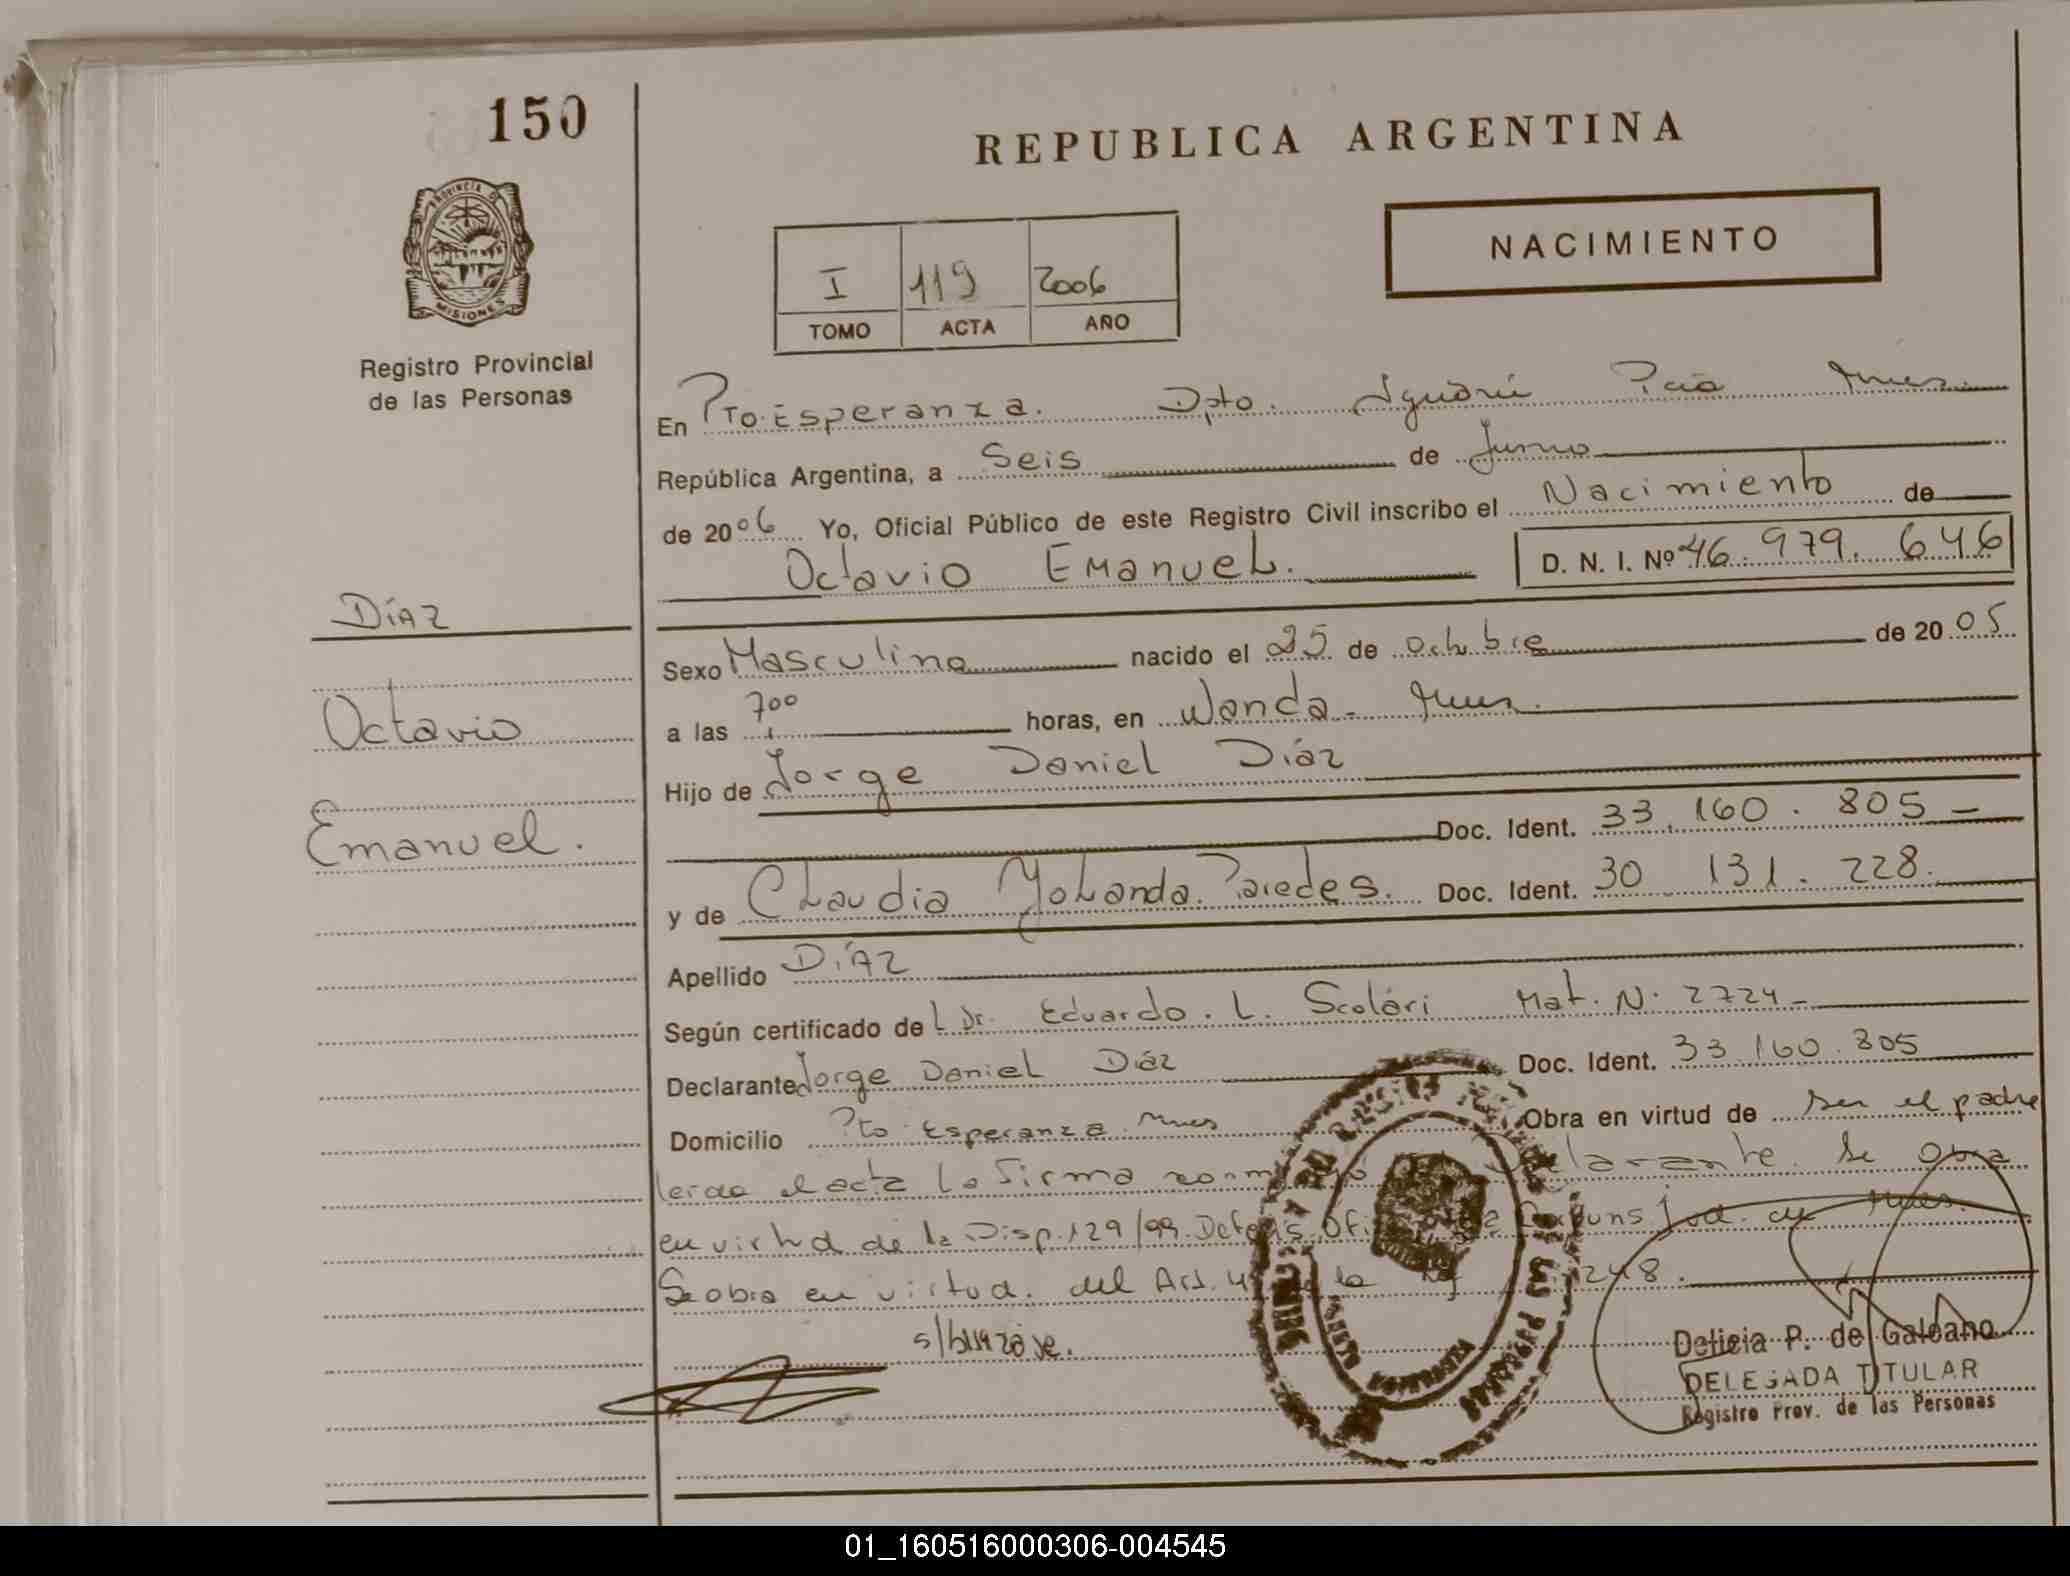 150
REPUBLICA ARGENTINA
NACIMIENTO
PROVINCIA DE
MISIONES
I 119 2006
TOMO ACTA AÑO
Registro Provincial
de las Personas
En Pto. Esperanza. Dpto. Iguazú Pcia Mnes.
República Argentina, a Seis de Junio
de 2006 Yo, Oficial Público de este Registro Civil inscribo el Nacimiento de
Octavio Emanuel. D. N. I. Nº 46.979.646
DÍAZ
Octavio
Emanuel.
Sexo Masculino nacido el 25 de octubre de 2005
a las 700 horas, en Wanda - Mnes.
Hijo de Jorge Daniel Díaz
Doc. Ident. 33.160.805 -
y de Claudia Yolanda Paredes. Doc. Ident. 30 131.228.
Apellido DÍAZ
Según certificado de L Dr. Eduardo. L. Scolari Mat. N. 2724 -
Declarante Jorge Daniel Díaz Doc. Ident. 33.160.805
Domicilio Pto Esperanza Mnes Obra en virtud de ser el padre
leida el acta la firma conmigo el Declarante. Se obra
en virtud de la Disp. 129/99. Jud. de Mnes.
Se obra en virtud. del Art. de la 248.
Delicia P. de Galeano
DELEGADA TITULAR
Registro Prov. de las Personas
01_160516000306-004545